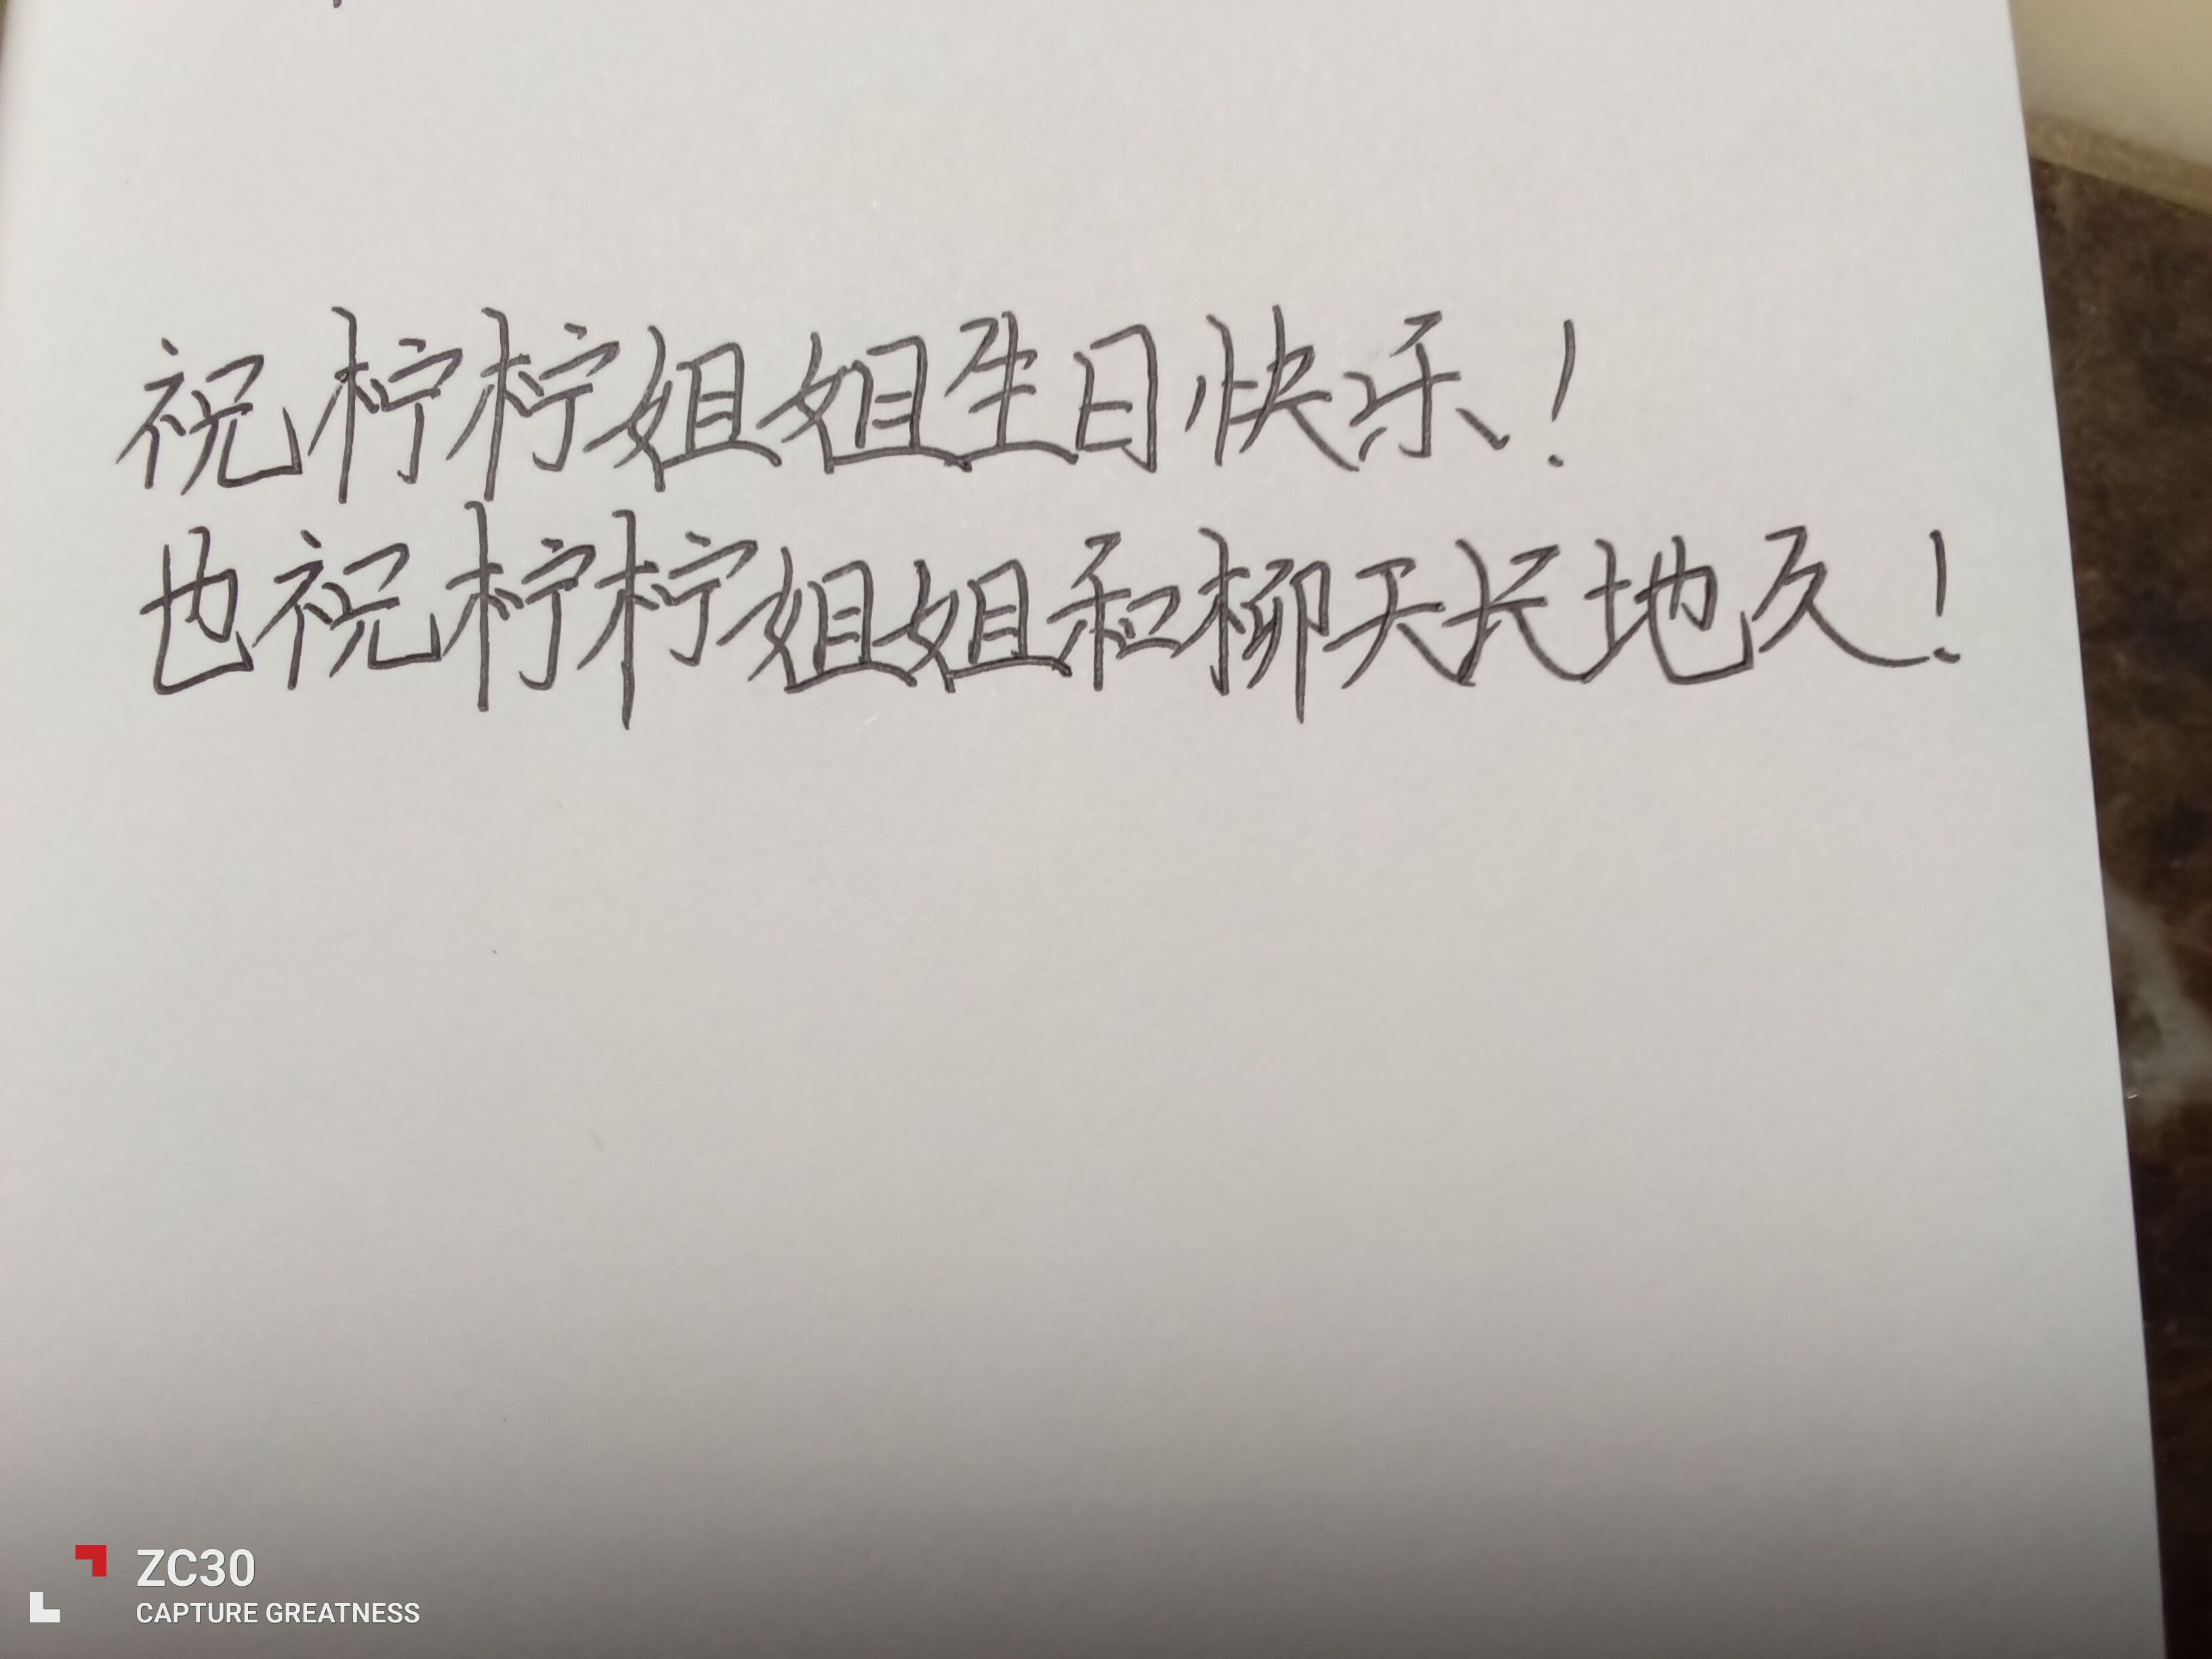 祝柠柠姐姐生日快乐！
也祝柠柠姐姐和柳天长地久！
ZC30
CAPTURE GREATNESS